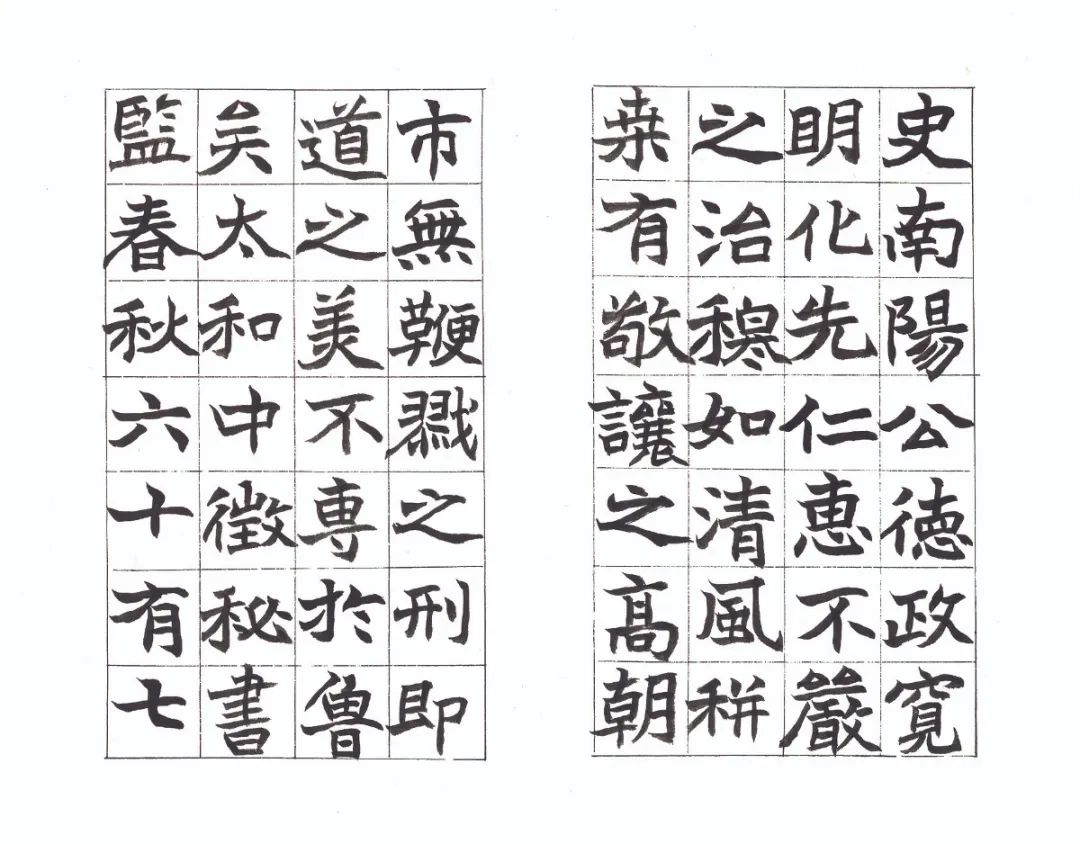 史南陽公德政寬
明化先仁惠不嚴
之治穆如清風耕
桒有敬讓之高朝
市無鞭戮之刑即
道之美不專於魯
矣太和中徵秘書
監春秋六十有七